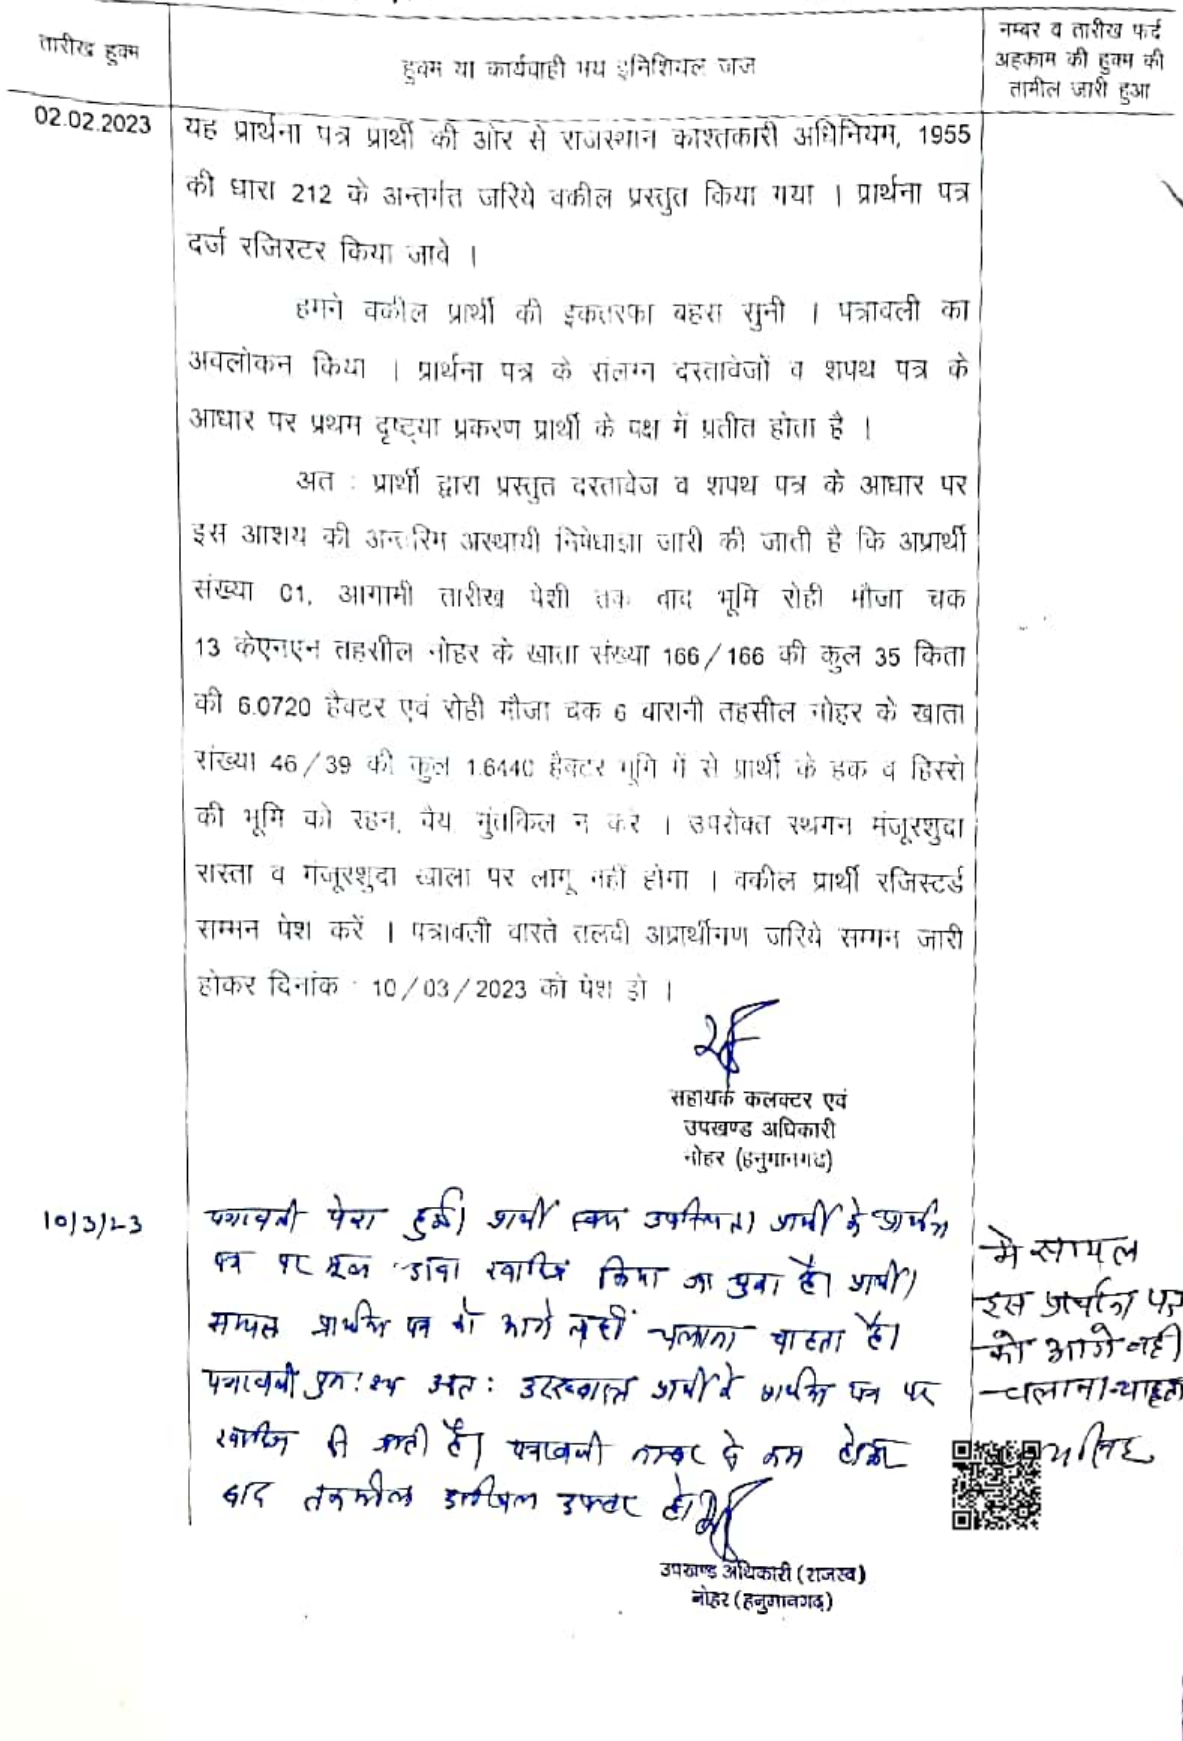 तारीख हुक्म
हुक्म या कार्यवाही मय इनिशियल जज
नम्बर व तारीख फर्द
अहकाम की हुक्म की
तामील जारी हुआ
02.02.2023
यह प्रार्थना पत्र प्रार्थी की ओर से राजस्थान काश्तकारी अधिनियम, 1955
की धारा 212 के अन्तर्गत जरिये वकील प्रस्तुत किया गया । प्रार्थना पत्र
दर्ज रजिस्टर किया जावे ।
हमने वकील प्रार्थी की इकतरफा बहस सुनी । पत्रावली का
अवलोकन किया । प्रार्थना पत्र के संलग्न दस्तावेजों व शपथ पत्र के
आधार पर प्रथम दृष्ट्या प्रकरण प्रार्थी के पक्ष में प्रतीत होता है ।
अत : प्रार्थी द्वारा प्रस्तुत दस्तावेज व शपथ पत्र के आधार पर
इस आशय की अन्तरिम अस्थायी निषेधाज्ञा जारी की जाती है कि अप्रार्थी
संख्या 01, आगामी तारीख पेशी तक वाद भूमि रोही मौजा चक
13 केएनएन तहसील नोहर के खाता संख्या 166/166 की कुल 35 किता
की 6.0720 हैक्टर एवं रोही मौजा चक 6 बारानी तहसील नोहर के खाता
संख्या 46/39 की कुल 1.6440 हैक्टर भूमि में से प्रार्थी के हक व हिस्से
की भूमि को रहन, बैय, मुंतकिल न करे । उपरोक्त स्थगन मंजूरशुदा
रास्ता व मंजूरशुदा खाला पर लागू नहीं होगा । वकील प्रार्थी रजिस्टर्ड
सम्मन पेश करें । पत्रावली वास्ते तलबी अप्रार्थीगण जरिये सम्मन जारी
होकर दिनांक : 10/03/2023 को पेश हो ।
सहायक कलक्टर एवं
उपखण्ड अधिकारी
नोहर (हनुमानगढ)
10/3/23
पत्रावली पेश हुई। प्रार्थी स्वयं उपस्थित। प्रार्थी के प्रार्थना
पत्र पर मूल दावा खारिज किया जा चुका है। प्रार्थी
प्रार्थना पत्र को आगे नहीं चलाना चाहता है।
पत्रावली अतः प्रार्थी के प्रार्थना पत्र पर
खारिज की जाती है। पत्रावली नम्बर से कम होकर
बाद तकमील दाखिल दफ्तर हो।
मे सायल
इस प्रार्थना पत्र
को आगे नही
चलाना चाहता
उपखण्ड अधिकारी (राजस्व)
नोहर (हनुमानगढ़)